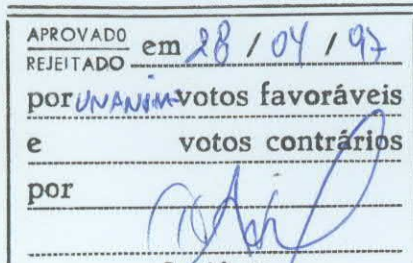 APROVADO
REJEITADO em 28 / 04 / 97
por UNANIM votos favoráveis
e votos contrários
por